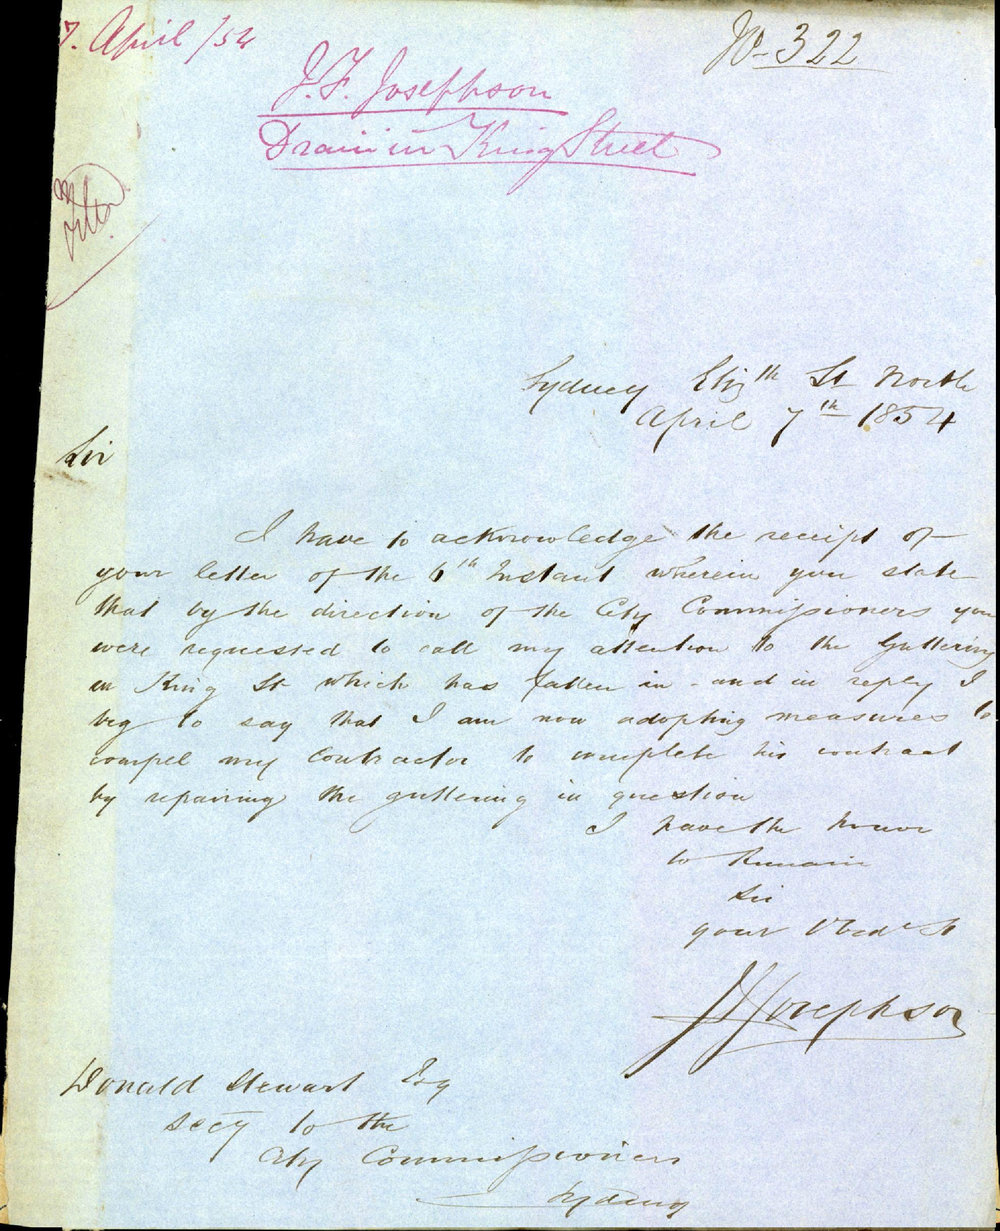 7. April /54
No. 322
J. F. Josephson
Drain in King Street
Sydney Elizth St North
April 7th 1854
Sir
I have to acknowledge the receipt of
your letter of the 6th Instant wherein you state
that by the direction of the City Commissioners you
were requested to call my attention to the Guttering
in King St which has fallen in - and in reply I
beg to say that I am now adopting measures to
compel my contractor to complete his contract
by repairing the guttering in question
I have the honor
to Remain
Sir
your Obedt St
J F Josephson
Donald Stewart Esq
Secy to the
City Commissioners
Sydney